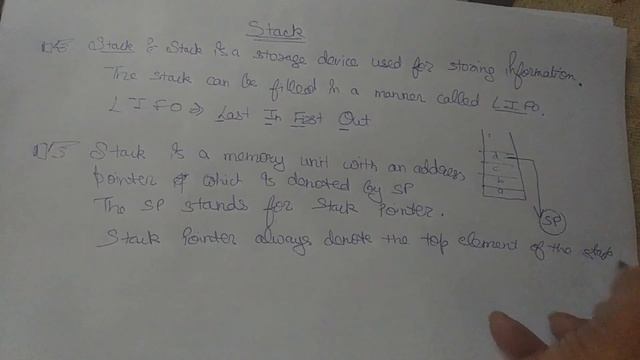 Stack
Stack : Stack is a storage device used for storing information.
The stack can be filled in a manner called LIFO.
LIFO ⇒ Last In First Out
Stack is a memory unit with an address
pointer which is denoted by SP
The SP stands for Stack Pointer.
Stack Pointer always denote the top element of the stack
d
c
b
a
SP